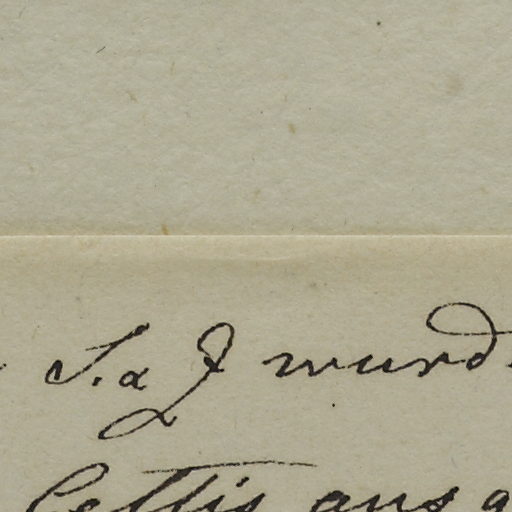 S. a J wurd
Cettis ans g